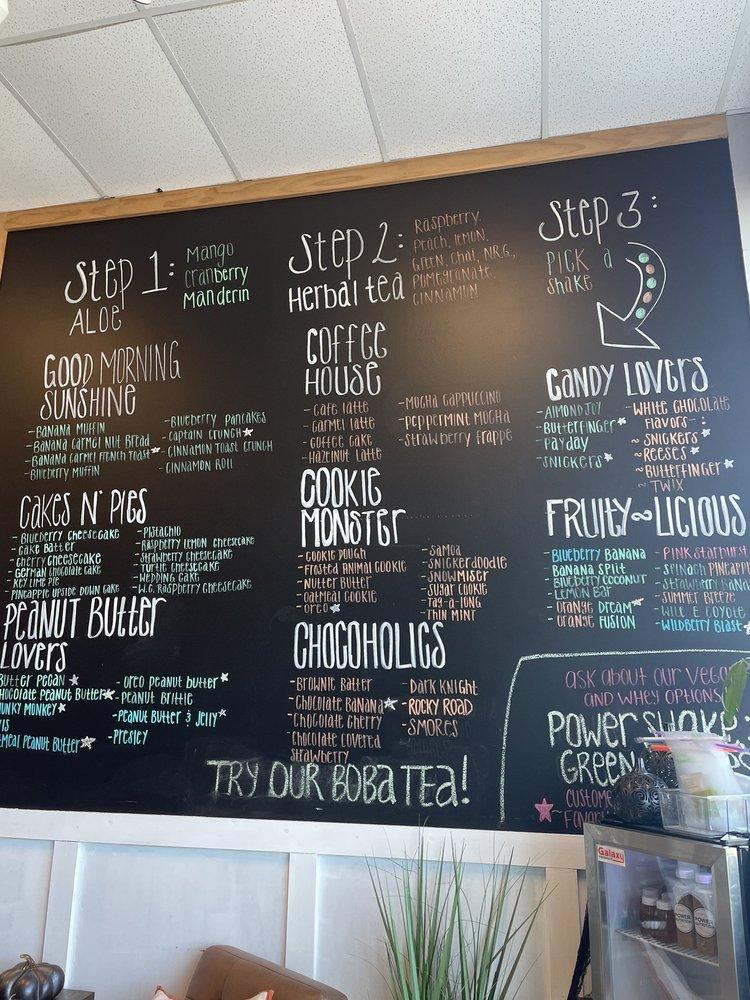 Step 1:
ALOE
Mango
Cranberry
Manderin
Step 2:
Herbal tea
Raspberry,
Peach, Lemon,
Green, Chai, N.R.G.,
Pomegranate,
Cinnamon
Step 3:
PICK a
shake
GOOD MORNING
SUNSHINE
-Banana Muffin
-Banana Carmel Nut Bread
-Banana Carmel French Toast
-Blueberry Muffin
-Blueberry Pancakes
-Captain Crunch
-Cinnamon Toast Crunch
-Cinnamon Roll
COFFEE
HOUSE
-Cafe Latte
-Carmel Latte
-Coffee Cake
-Hazelnut Latte
-Mocha Cappuccino
-Peppermint Mocha
-Strawberry Frappe
CANDY LOVERS
-Almond Joy
-Butterfinger
-Payday
-Snickers
-White Chocolate
Flavors:
~ Snickers
~ Reeses
~ Butterfinger
~ Twix
CAKES N' PIES
-Blueberry Cheesecake
-Cake Batter
-Cherry Cheesecake
-German Chocolate Cake
-Key Lime Pie
-Pineapple Upside Down Cake
-Pistachio
-Raspberry Lemon Cheesecake
-Strawberry Cheesecake
-Turtle Cheesecake
-Wedding Cake
-W.C. Raspberry Cheesecake
COOKIE
MONSTER
-Cookie Dough
-Frosted Animal Cookie
-Nutter Butter
-Oatmeal Cookie
-Oreo
-Samoa
-Snickerdoodle
-Snowmiser
-Sugar Cookie
-Tag-a-long
-Thin Mint
FRUITY~LICIOUS
-Blueberry Banana
-Banana Split
-Blueberry Coconut
-Lemon Bar
-Orange Dream
-Orange Fusion
-Pink Starburst
-Spinach Pineapp
-Strawberry Bana
-Summer Breeze
-Wile E Coyote
-Wildberry Blast
PEANUT BUTTER
LOVERS
Butter Pecan
Chocolate Peanut Butter
unky Monkey
vis
tmeal Peanut Butter
-Oreo Peanut Butter
-Peanut Brittle
-Peanut Butter & Jelly
-Presley
CHOCOHOLICS
-Brownie Batter
-Chocolate Banana
-Chocolate Cherry
-Chocolate Covered
Strawberry
-Dark Knight
-Rocky Road
-S'mores
ASK ABOUT OUR VEGA
AND WHEY OPTIONS
POWER SHAKE
GREEN
CUSTOME
~ FAVO
TRY OUR BOBA TEA!
Galaxy
POWER
POWER